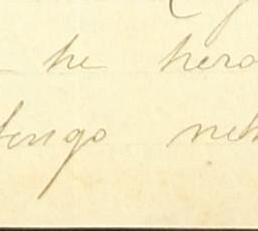 he hero
tengo neh